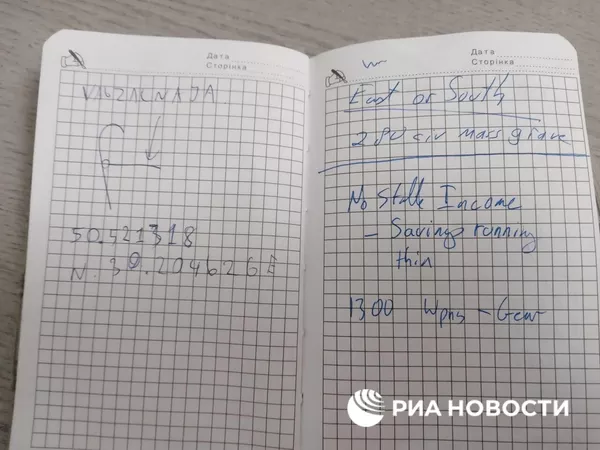 Дата
Сторінка
VAGZALNAJA
50.521318
N. 39.204626 E
Дата
Сторінка
East or South
280 civ mass grave
No Stable Income
- Savings running
thin
1300 Wpns - Gear
РИА НОВОСТИ